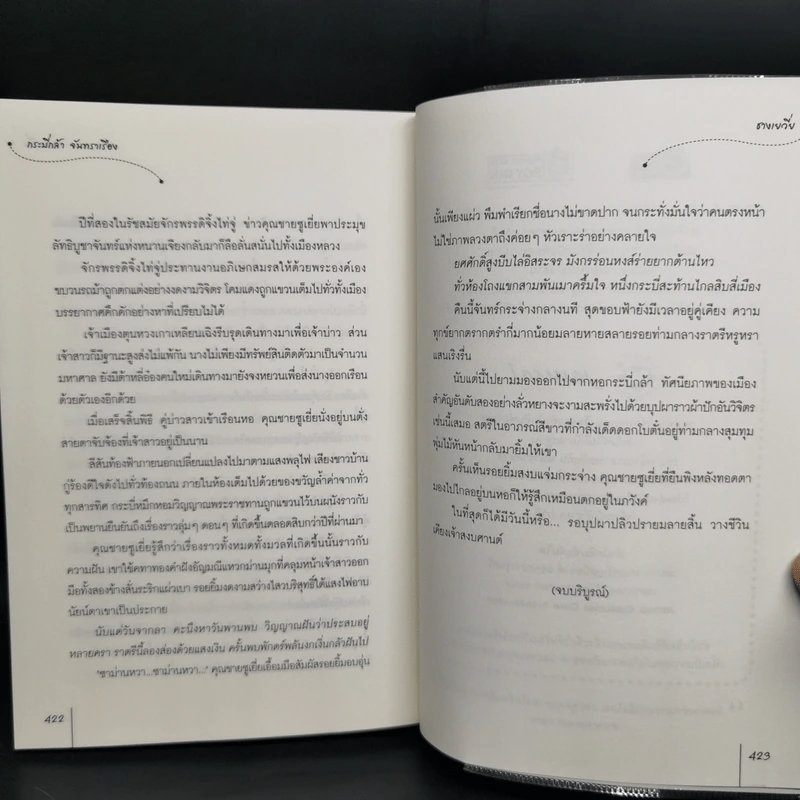 กระบี่กล้า จันทราเรือง
ปีที่สองในรัชสมัยจักรพรรดิจิ้งไท่จู่ ข่าวคุณชายซูเยี่ยพาประมุข
ลัทธิบูชาจันทร์แห่งหนานเจียงกลับมาก็ลือลั่นสนั่นไปทั้งเมืองหลวง
จักรพรรดิจิ้งไท่จู่ประทานงานอภิเษกสมรสให้ด้วยพระองค์เอง
ขบวนรถม้าถูกตกแต่งอย่างงดงามวิจิตร โคมแดงถูกแขวนเต็มไปทั่วทั้งเมือง
บรรยากาศคึกคักอย่างหาที่เปรียบไม่ได้
เจ้าเมืองตุนหวงเกาเหลียนเฉิงรีบรุดเดินทางมาเพื่อเจ้าบ่าว ส่วน
เจ้าสาวก็มีฐานะสูงส่งไม่แพ้กัน นางไม่เพียงมีทรัพย์สินติดตัวมาเป็นจำนวน
มหาศาล ยังมีต้าหลี่อ๋องคนใหม่เดินทางมายังจงหยวนเพื่อส่งนางออกเรือน
ด้วยตัวเองอีกด้วย
เมื่อเสร็จสิ้นพิธี คู่บ่าวสาวเข้าเรือนหอ คุณชายซูเยี่ยนั่งอยู่บนตั่ง
สายตาจับจ้องที่เจ้าสาวอยู่เป็นนาน
สีสันท้องฟ้าภายนอกเปลี่ยนแปลงไปมาตามแสงพลุไฟ เสียงชาวบ้าน
กู่ร้องดีใจดังไปทั่วท้องถนน ภายในห้องเต็มไปด้วยของขวัญล้ำค่าจากทั่ว
ทุกสารทิศ กระบี่หมึกหอมวิญญาณพระราชทานถูกแขวนไว้บนผนังราวกับ
เป็นพยานยืนยันถึงเรื่องราวลุ่มๆ ดอนๆ ที่เกิดขึ้นตลอดสิบกว่าปีที่ผ่านมา
คุณชายซูเยี่ยรู้สึกว่าเรื่องราวทั้งหมดทั้งมวลที่เกิดขึ้นนั้นราวกับ
ความฝัน เขาใช้คทาทองคำฝังอัญมณีแหวกม่านมุกที่คลุมหน้าเจ้าสาวออก
มือทั้งสองข้างสั่นระริกแผ่วเบา รอยยิ้มงดงามสว่างไสวบริสุทธิ์ใต้แสงไฟอาบ
นัยน์ตาเขาเป็นประกาย
นับแต่วันจากลา คะนึงหาวันพานพบ วิญญาณฝันว่าประสบอยู่
หลายครา ราตรีนี้ลองส่องด้วยแสงเงิน ครั้นพบพักตร์พลันงกเงิ่นกลัวฝันไป
"ซาม่านหวา...ซาม่านหวา..." คุณชายซูเยี่ยเอื้อมมือสัมผัสรอยยิ้มอบอุ่น
422
ซางเยวี่ย
นั้นเพียงแผ่ว พึมพำเรียกชื่อนางไม่ขาดปาก จนกระทั่งมั่นใจว่าคนตรงหน้า
ไม่ใช่ภาพลวงตาถึงค่อยๆ หัวเราะร่าอย่างคลายใจ
ยศศักดิ์สูงบีบไล่อิสระจร มังกรร่อนหงส์ร่ายยากต้านไหว
ทั่วห้องโถงแขกสามพันเมาครึ้มใจ หนึ่งกระบี่สะท้านไกลสิบสี่เมือง
คืนนี้จันทร์กระจ่างกลางนที สุดขอบฟ้ายังมีเวลาอยู่คู่เคียง ความ
ทุกข์ยากตรากตรำที่มากน้อยมลายหายสลายรอยท่ามกลางราตรีหรูหรา
แสนเริงรื่น
นับแต่นี้ไปยามมองออกไปจากหอกระบี่กล้า ทัศนียภาพของเมือง
สำคัญอันดับสองอย่างลั่วหยางจะงามสะพรั่งไปด้วยบุปผาราวผ้าปักอันวิจิตร
เช่นนี้เสมอ สตรีในอาภรณ์สีขาวที่กำลังเด็ดดอกโบตั๋นอยู่ท่ามกลางสุมทุม
พุ่มไม้หันหน้ากลับมายิ้มให้เขา
ครั้นเห็นรอยยิ้มสงบแจ่มกระจ่าง คุณชายซูเยี่ยที่ยืนพิงหลังทอดตา
มองไปไกลอยู่บนหอก็ให้รู้สึกเหมือนตกอยู่ในภวังค์
ในที่สุดก็ได้มีวันนี้หรือ... รอบุปผาปลิวปรายมลายสิ้น วางชีวิน
เคียงเจ้าสงบศานต์
(จบบริบูรณ์)
423